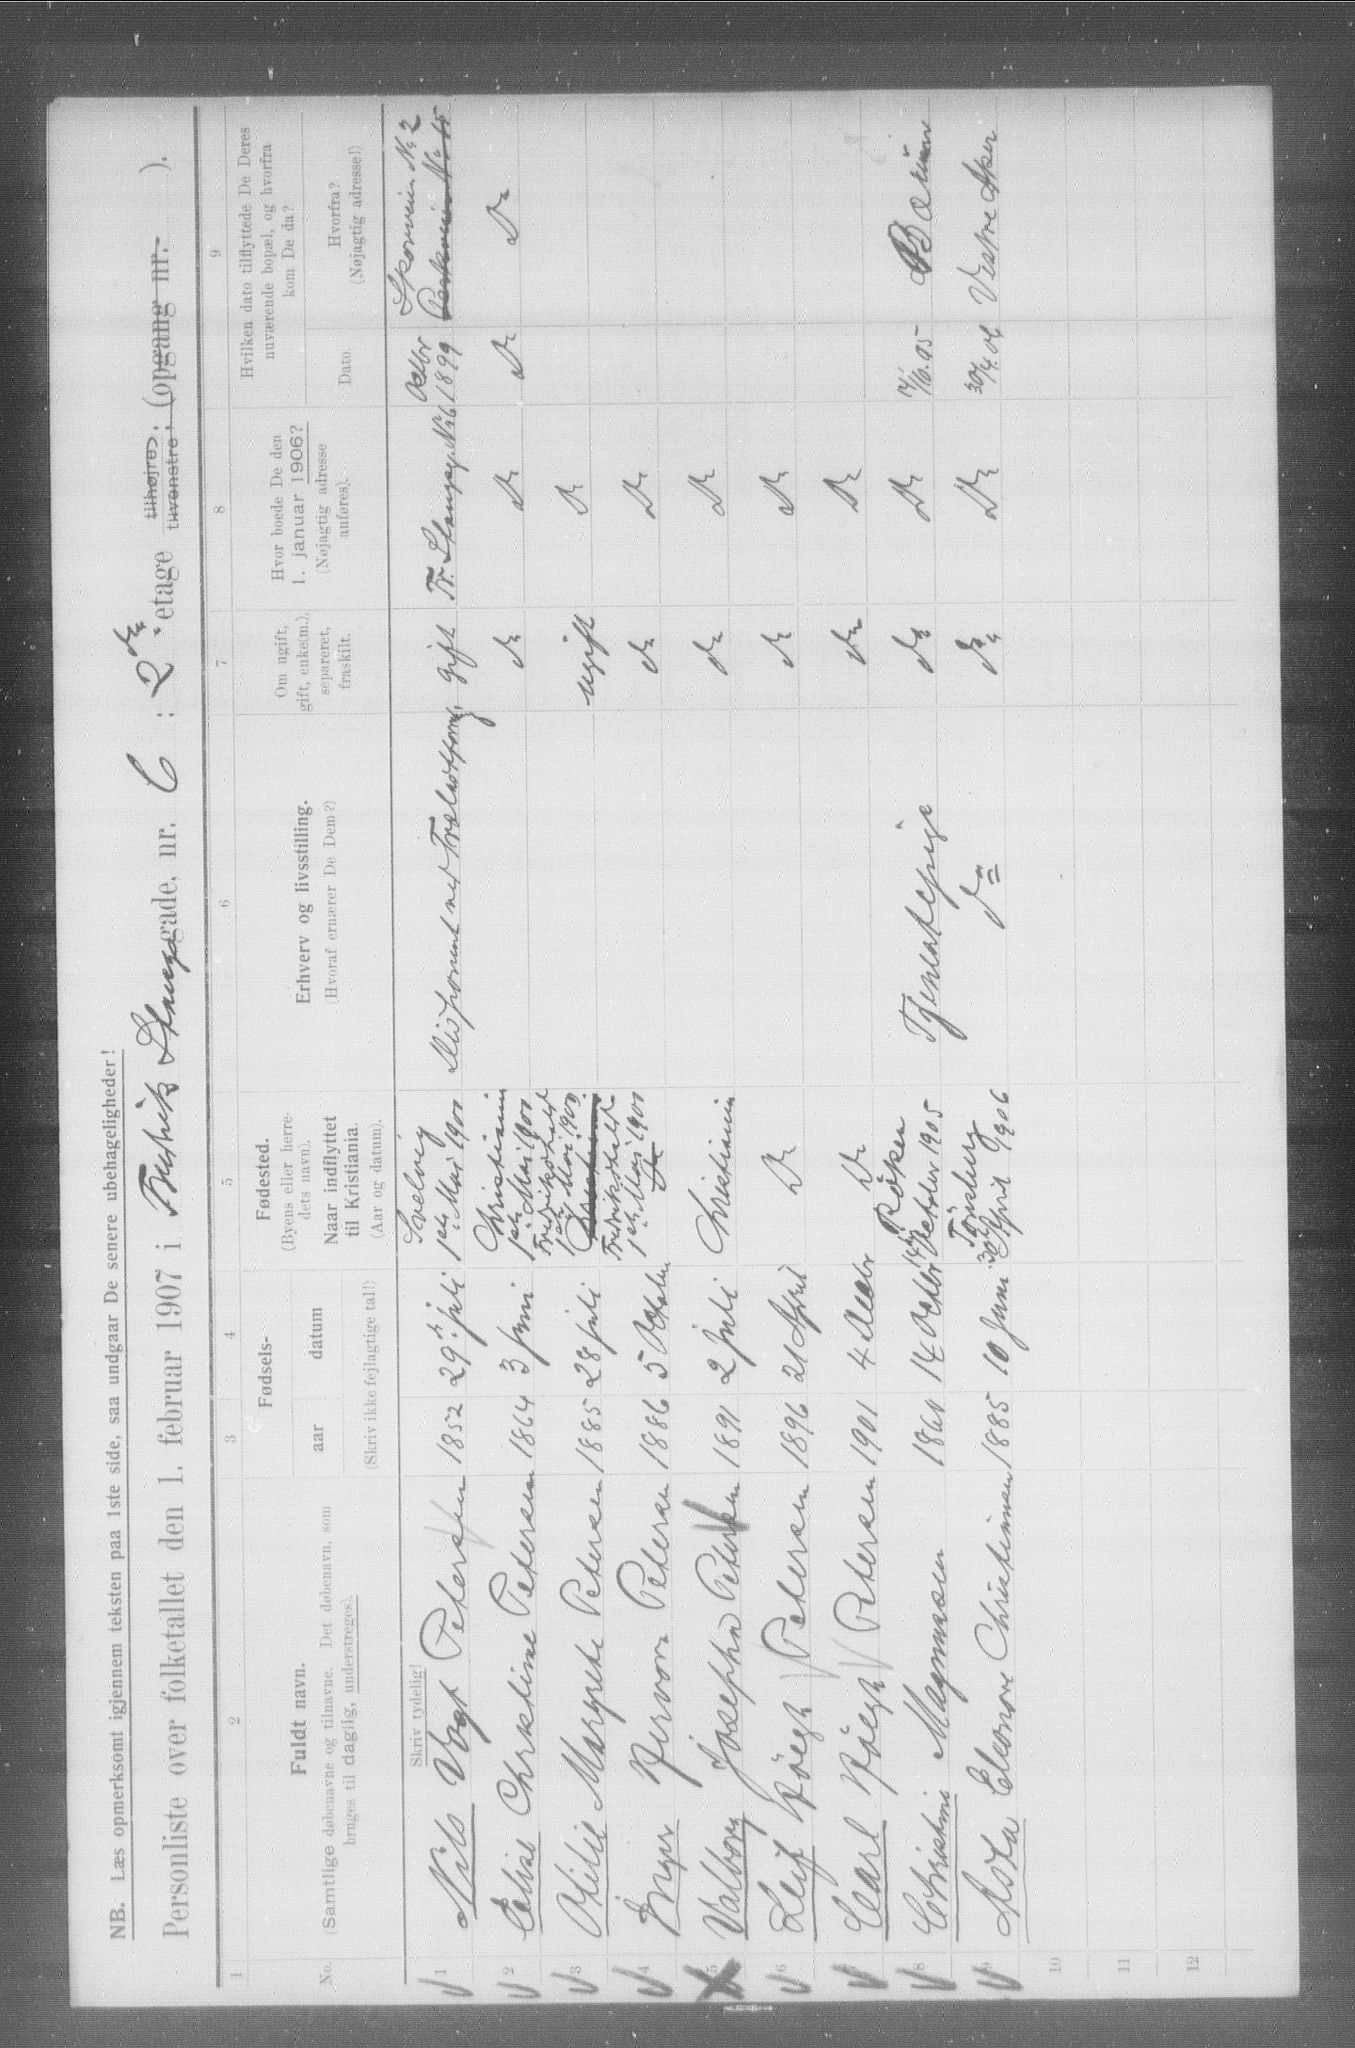 NB. Læs opmerksomt igjennem teksten paa 1ste side, saa undgaar De senere ubehageligheder!
Personliste over folketallet den 1. februar 1907 i Fredrik Stangs gade, nr. 6 : 2den etage tilhøjre, tilvenstre, (opgang nr. ).
1 2 3 4 5 6 7 8 9
No.
Fuldt navn.
(Samtlige døbenavne og tilnavne. Det døbenavn, som
bruges til daglig, understreges).
Fødsels-
aar datum
(Skriv ikke fejlagtige tal!)
Fødested.
(Byens eller herre-
dets navn).
Naar indflyttet
til Kristiania.
(Aar og datum).
Erhverv og livsstilling.
(Hvoraf ernærer De Dem?)
Om ugift,
gift, enke(m.),
separeret,
fraskilt.
Hvor boede De den
1. januar 1906?
(Nøjagtig adresse
anføres).
Hvilken dato tilflyttede De Deres
nuværende bopæl, og hvorfra
kom De da?
Dato.
Hvorfra?
(Nøjagtig adresse!)
Skriv tydelig!
Svelvig Octbr Skovveien No 2
1 Nils Vogt Petersen 1852 29de juli 1ste Mai 1900 gift Fr. Stangsg. No 6 1899
Christiania
2 Christine Petersen 1864 3 juni 1ste Mai 1900 do Do Do Do
Fredrikshald
3 Otilie Margrethe Petersen 1885 28 juli 1ste Mai 1900 ugift Do
Fredrikshald
4 Inger Petersen 1886 5 October 1ste Mai 1900 do Do
5 Valborg Josephine Petersen 1891 2 juli Christiania do Do
6 Leif Petersen 1896 21 April Do do Do
7 Carl Petersen 1901 4 Decbr Do do Do
Röken
8 Christine Magnussen 1860 14 Octbr October 1905 Tjenestepige do Do Bærum
Tönsberg
9 Asta Eleonore Christiansen 1885 10 Juni 30te April 1906 do do Do 30/4.06 Vestre Aker
10
11
12